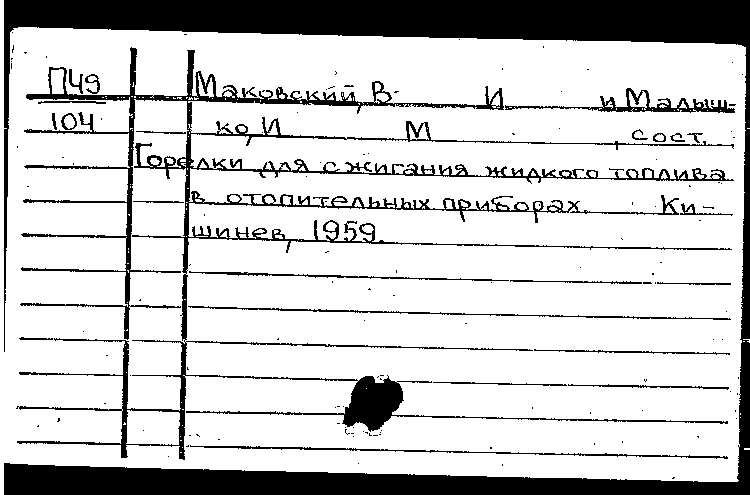 П49 Маковский, В. И и Малыш-
104 ко, И М , сост.
Горелки для сжигания жидкого топлива
в отопительных приборах. Ки-
шинев, 1959.